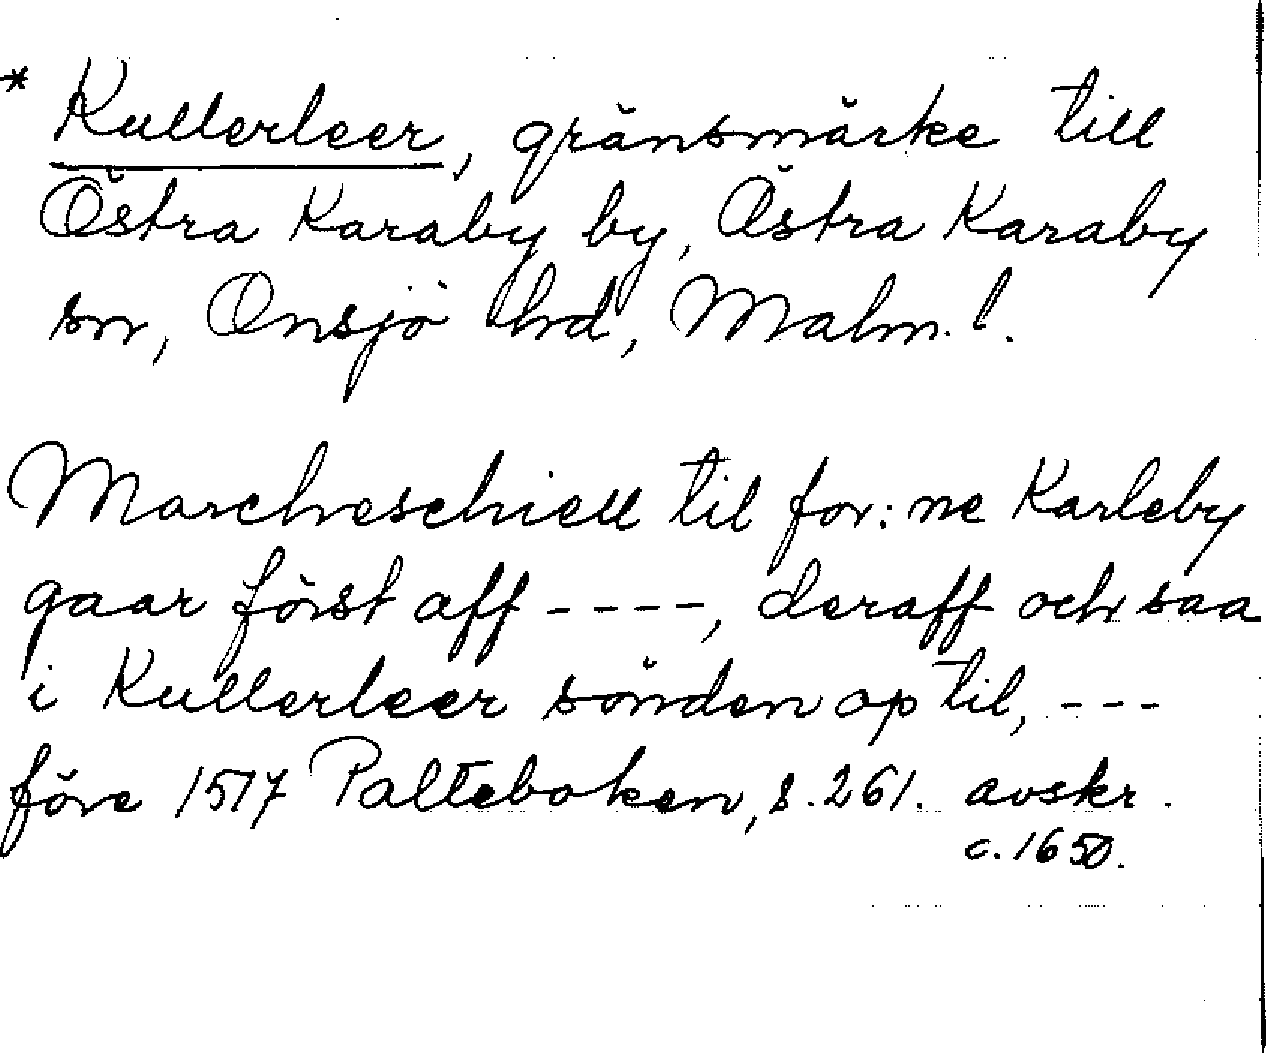 * Kullerleer, gränsmärke till
Östra Karaby by, Östra Karaby
sn, Onsjö hd, Malm. l.
Marcheschiell til for:ne Karleby
gaar först aff ----, deraff och saa
i Kullerleer sönden op til, ---
före 1517 Palteboken, s. 261. avskr.
c. 1650.